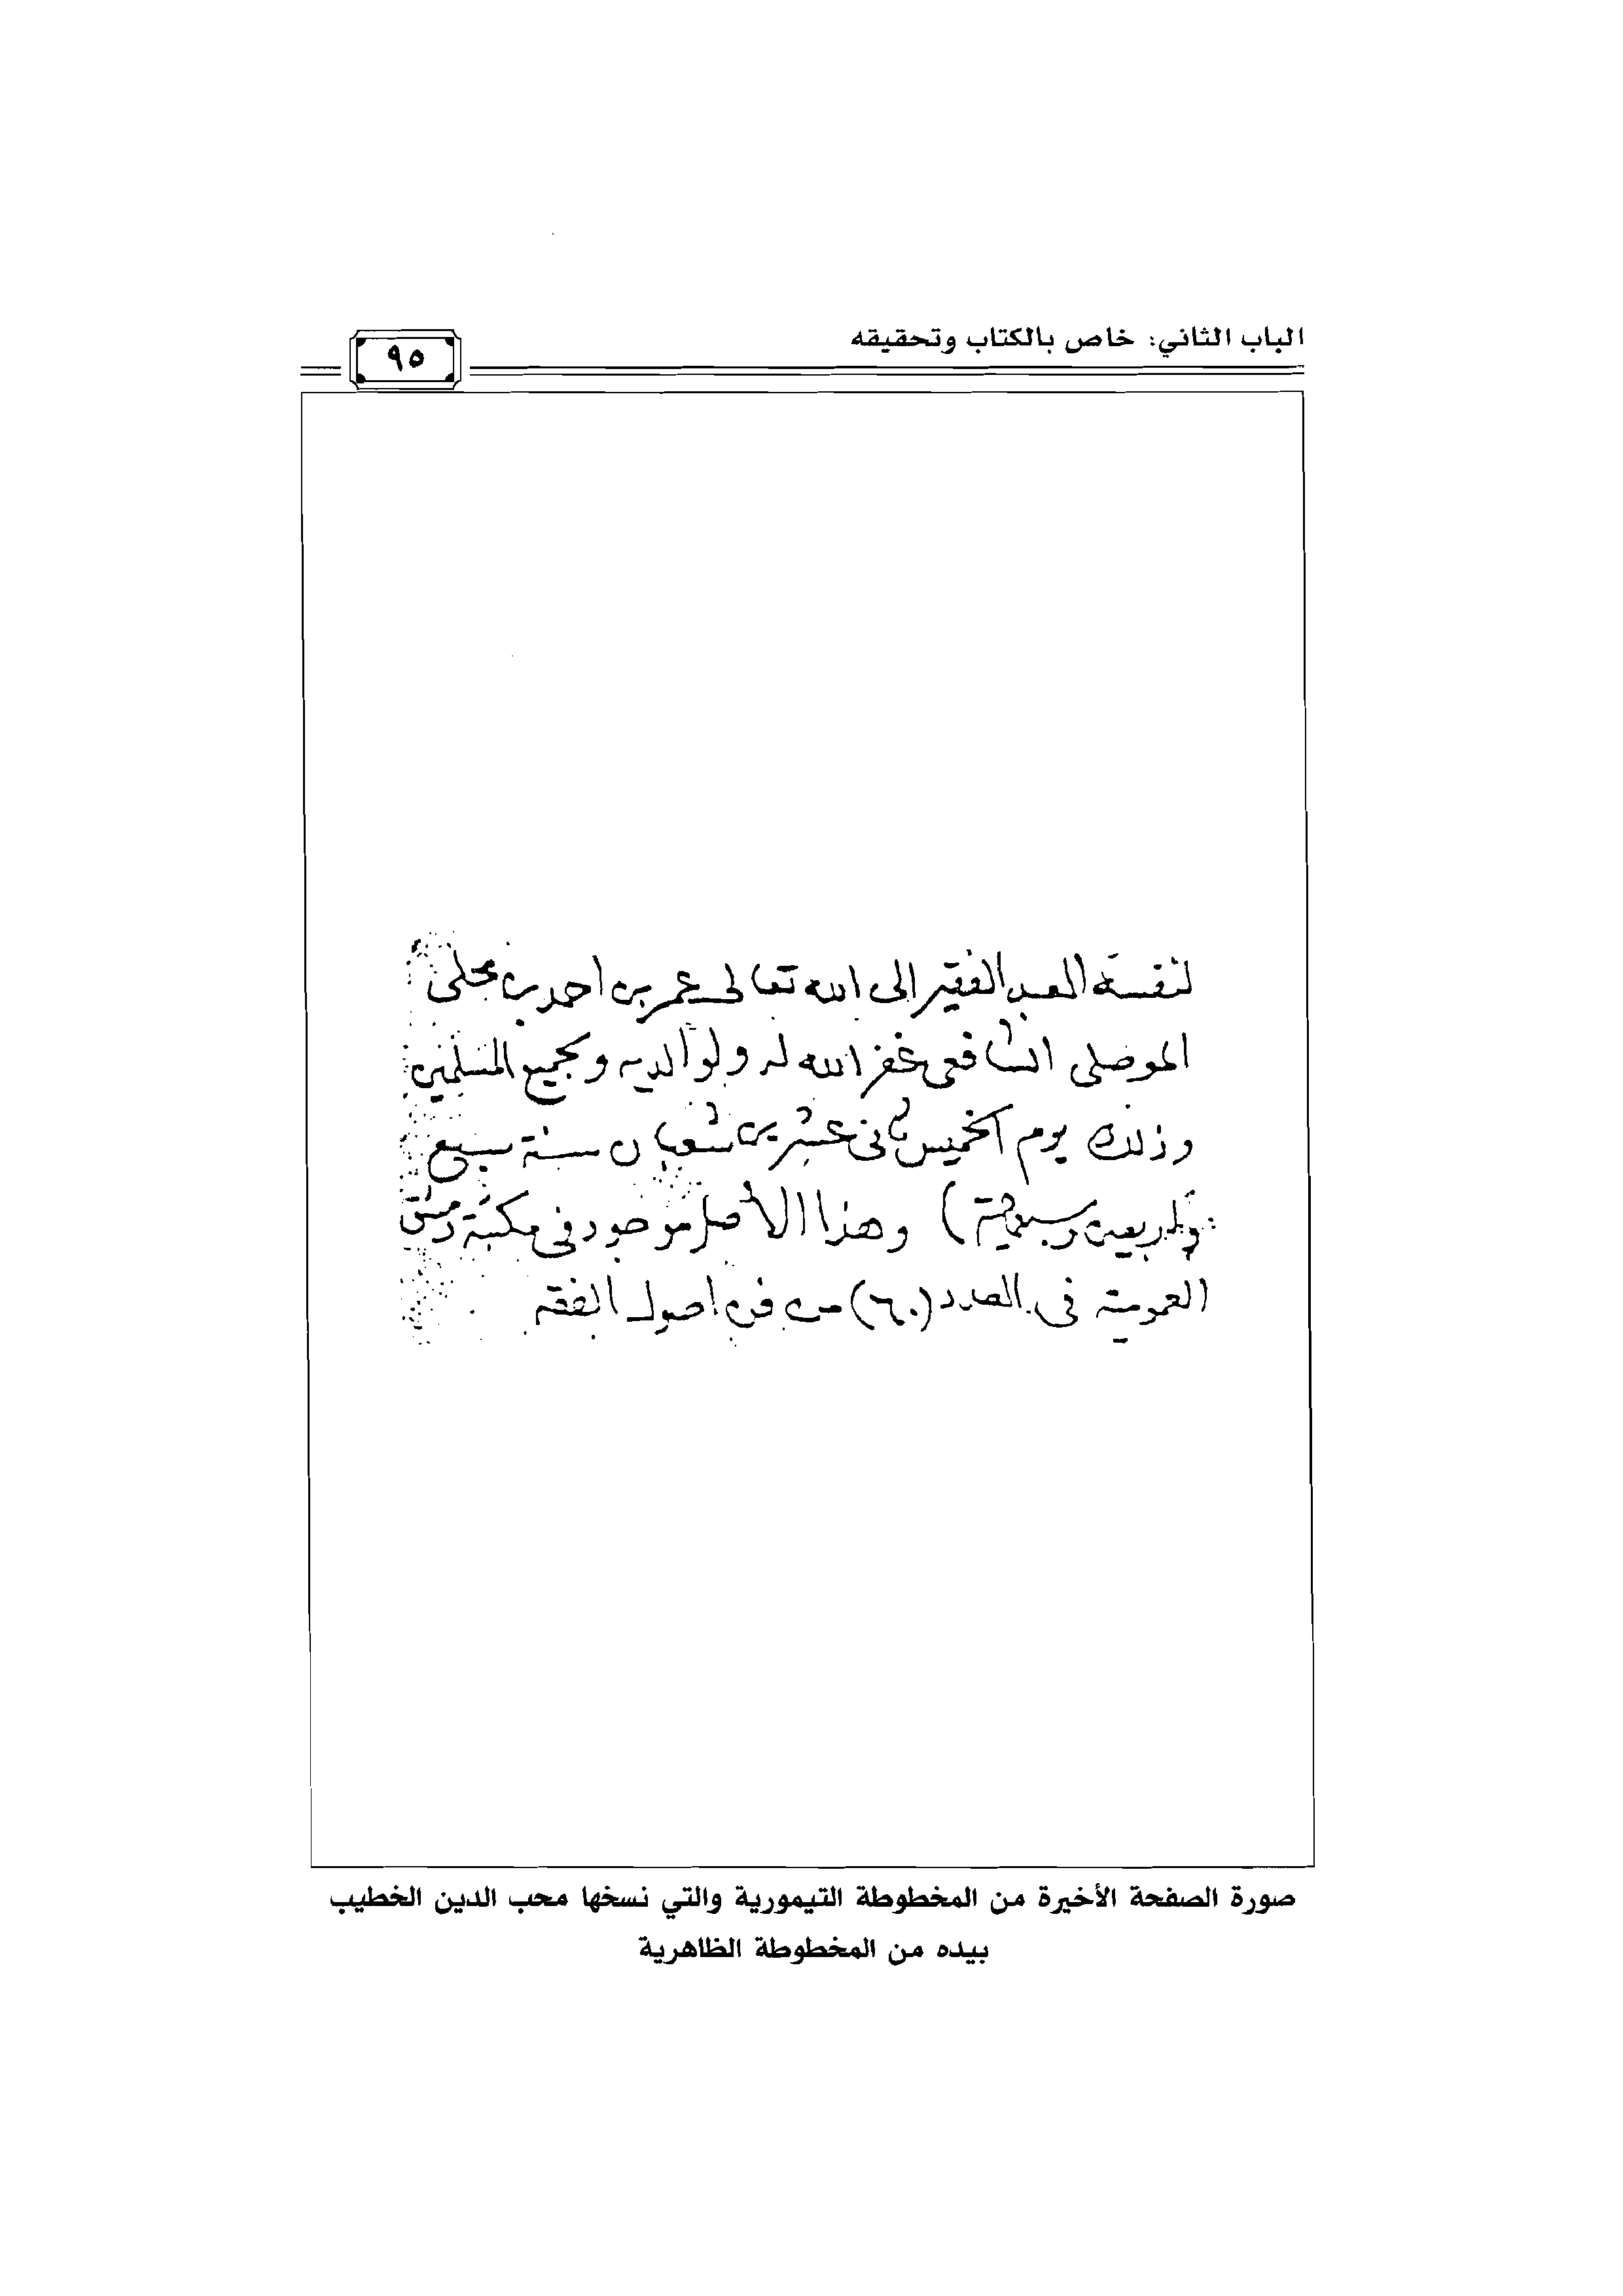 الباب الثاني: خاص بالكتاب وتحقيقه
٩٥
لنفسه العبد الفقير الى الله تعالى عمر بن احمد بن محلى
الموصلى الشافعى غفر الله له ولوالديه ولجميع المسلمين
وذلك يوم الخميس ثانى عشرين شعبان سنة سبع
واربعين وسبعمية) وهذا الأصل موجود فى مكتبة دمشق
العمومية فى العدد (٦٠) من فن اصول الفقه
صورة الصفحة الأخيرة من المخطوطة التيمورية والتي نسخها محب الدين الخطيب
بيده من المخطوطة الظاهرية